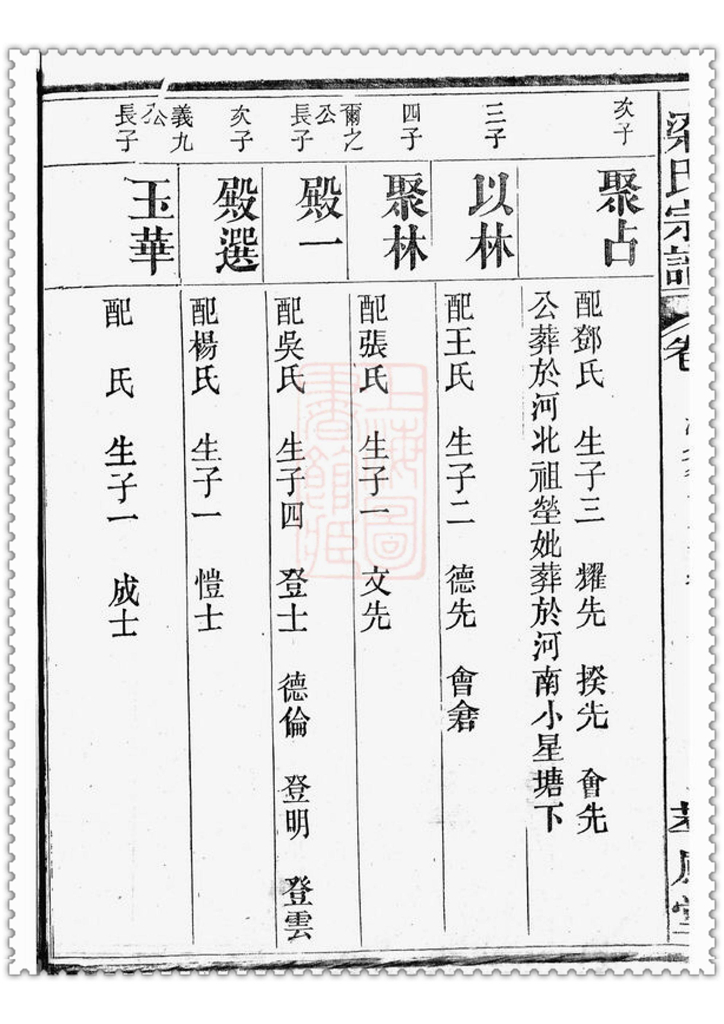 梁氏宗譜
卷
次子
聚占
配鄧氏 生子三 耀先 揆先 會先
公葬於河北祖塋妣葬於河南小星塘下
三子
以林
配王氏 生子二 德先 會倉
四子
聚林
配張氏 生子一 文先
爾之公長子
殿一
配吳氏 生子四 登士 德倫 登明 登雲
次子
殿選
配楊氏 生子一 愷士
義九公長子
玉華
配 氏 生子一 成士
上海圖書館藏